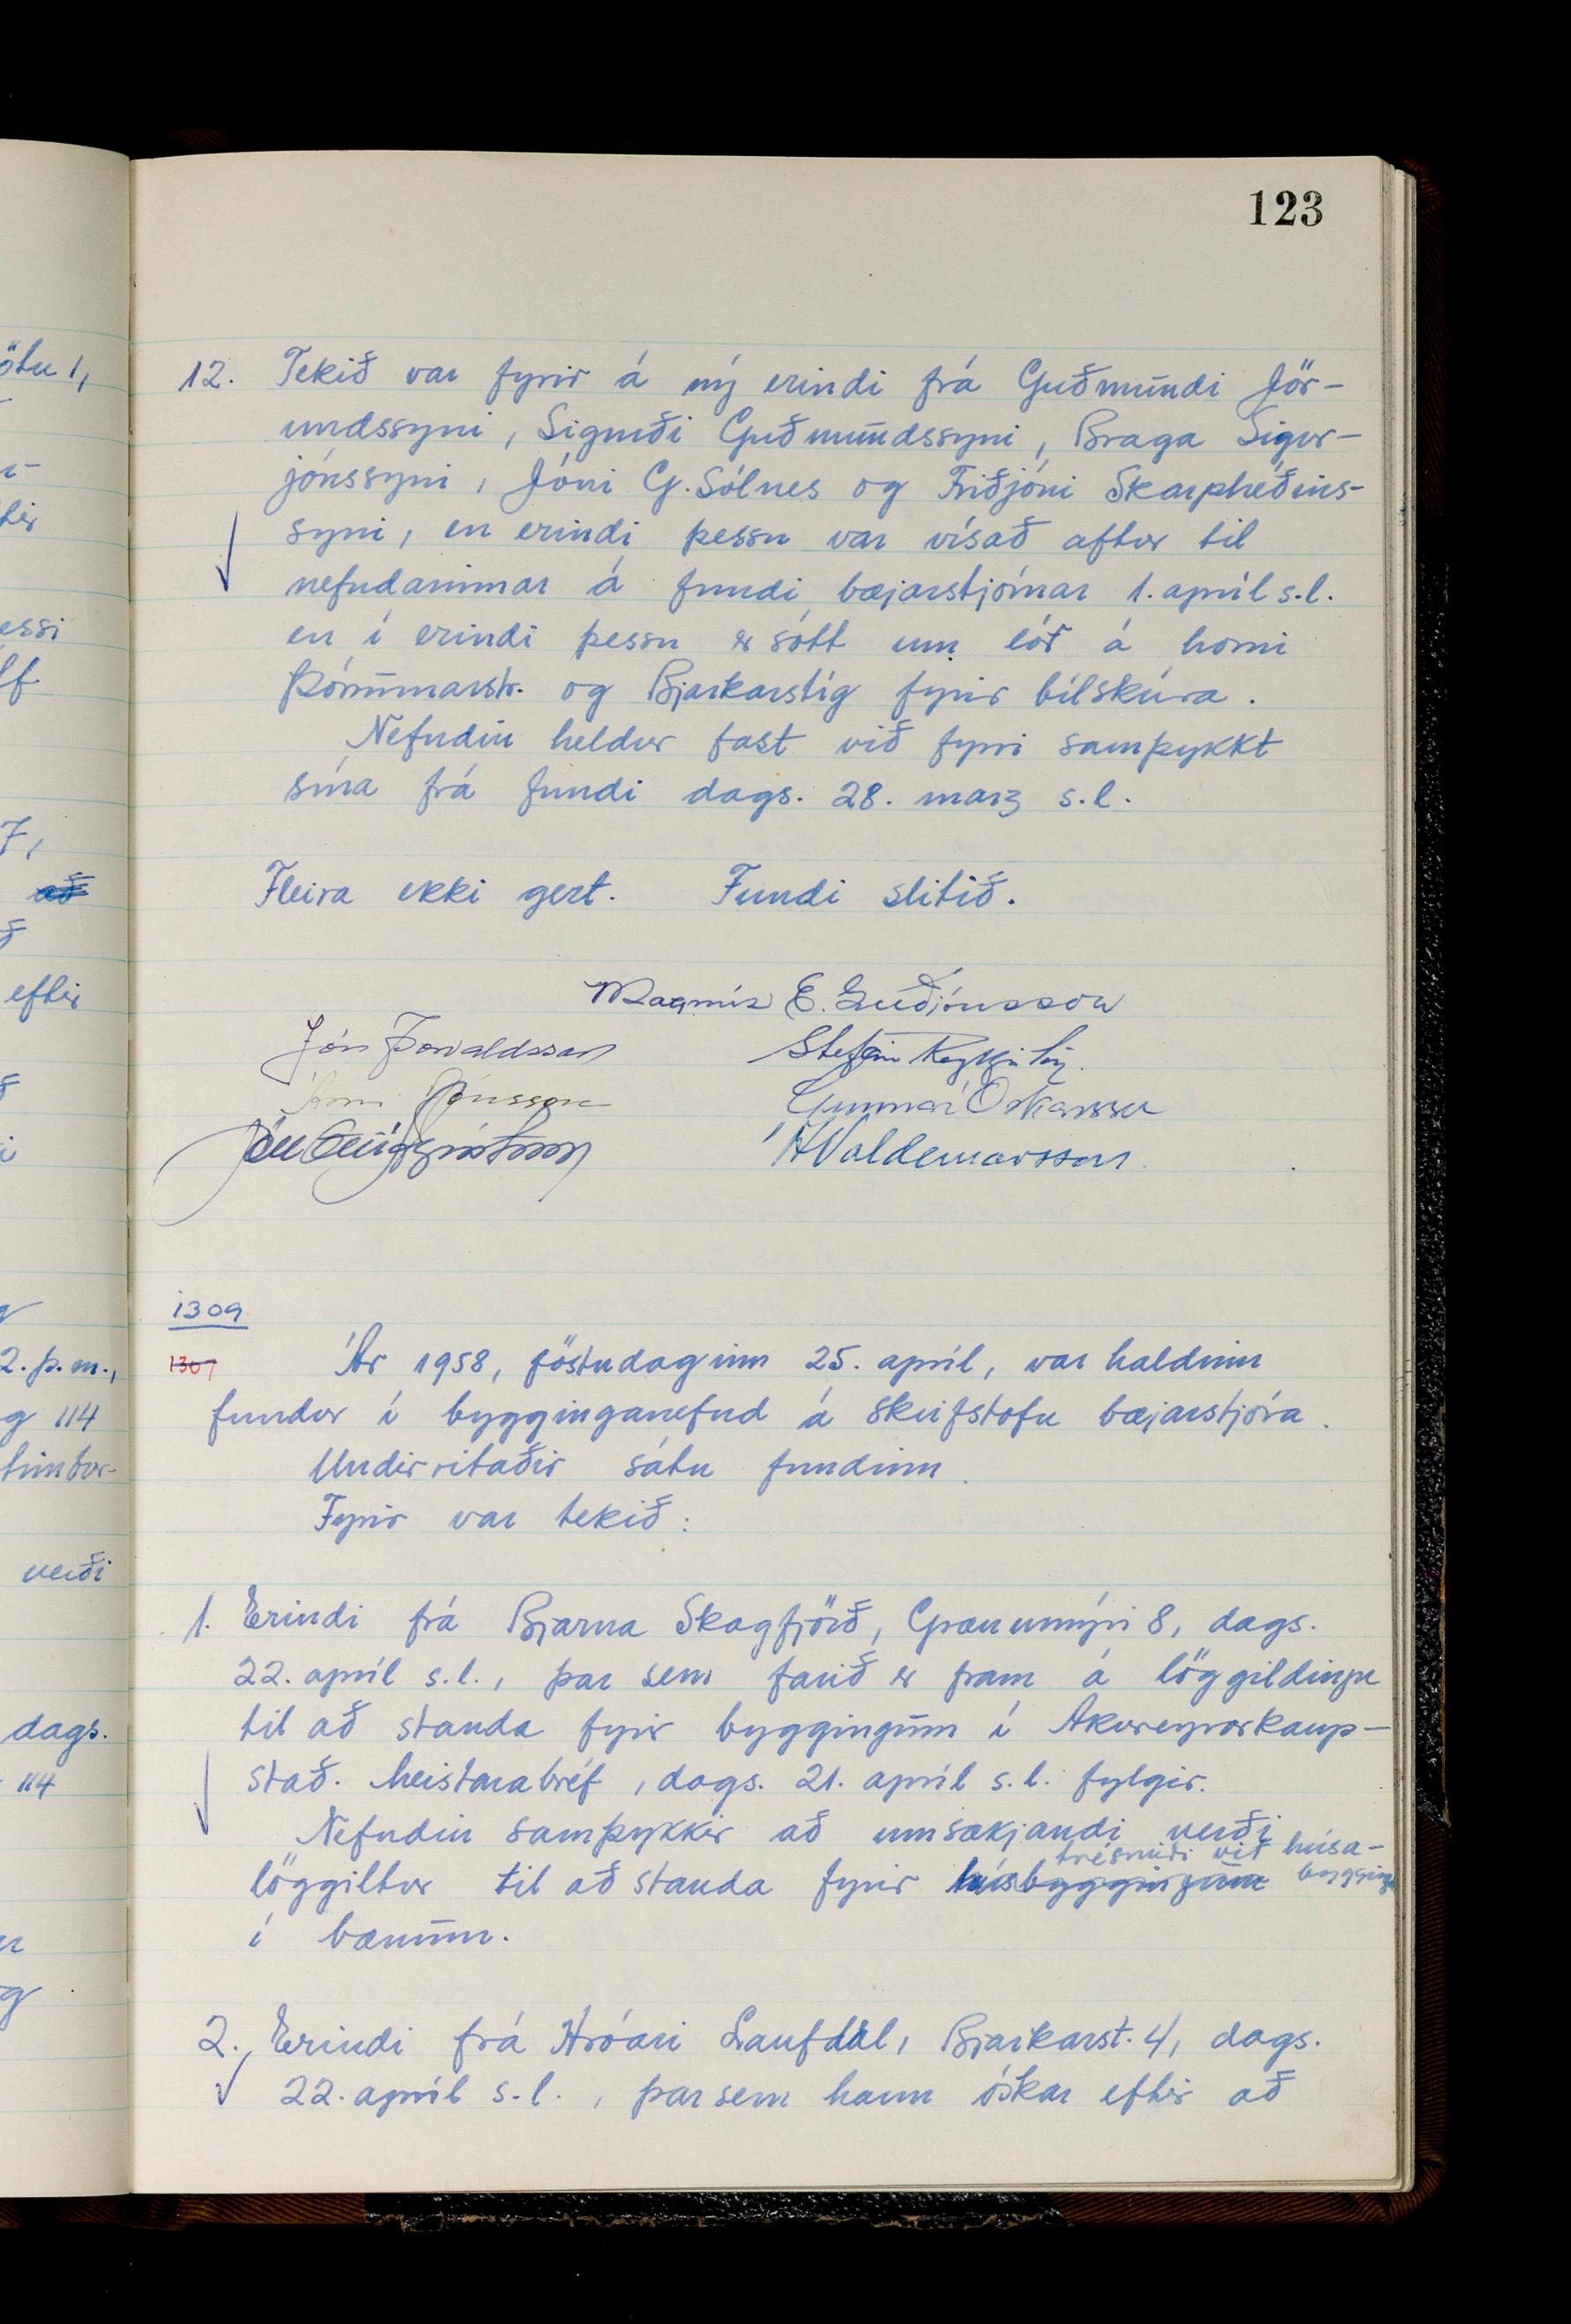 123
12. Tekið var fyrir á ný erindi frá Guðmundi Jör-
undssyni, Sigurði Guðmundssyni, Braga Sigur-
jónssyni, Jóni G. Sólnes og Friðjóni Skarphéðins-
syni, en erindi þessu var vísað aftur til
nefndarinnar á fundi bæjarstjórnar 1. apríl s.l.
en í erindi þessu er sótt um lóð á horni
Þórunnarstr. og Bjarkarstíg fyrir bílskúra.
Nefndin heldur fast við fyrri samþykkt
sína frá fundi dags. 28. marz s.l.
Fleira ekki gert. Fundi slitið.
Magnús E. Guðjónsson
Jón Þorvaldsson Stefán Reykjalín
Jónsson Gunnar Óskarsson
H Valdemarsson
1309
1307 Ár 1958, föstudaginn 25. apríl, var haldinn
fundur í bygginganefnd á skrifstofu bæjarstjóra.
Undirritaðir sátu fundinn.
Fyrir var tekið:
1. Erindi frá Bjarna Skagfjörð, Grænumýri 8, dags.
22. apríl s.l., þar sem farið er fram á löggildingu
til að standa fyrir byggingum í Akureyrarkaup-
stað. Meistarabréf, dags. 21. apríl s.l. fylgir.
Nefndin samþykkir að umsækjandi verði
trésmíði við húsa-
löggiltur til að standa fyrir húsbyggingum bygginga
í bænum.
2. Erindi frá Hróari Laufdal, Bjarkarst. 4, dags.
22. apríl s.l., þar sem hann óskar eftir að
ötu 1,
tir
essi
lf
7,
að
eftir
2. þ.m.,
g 114
timbur-
verði
dags.
114
g